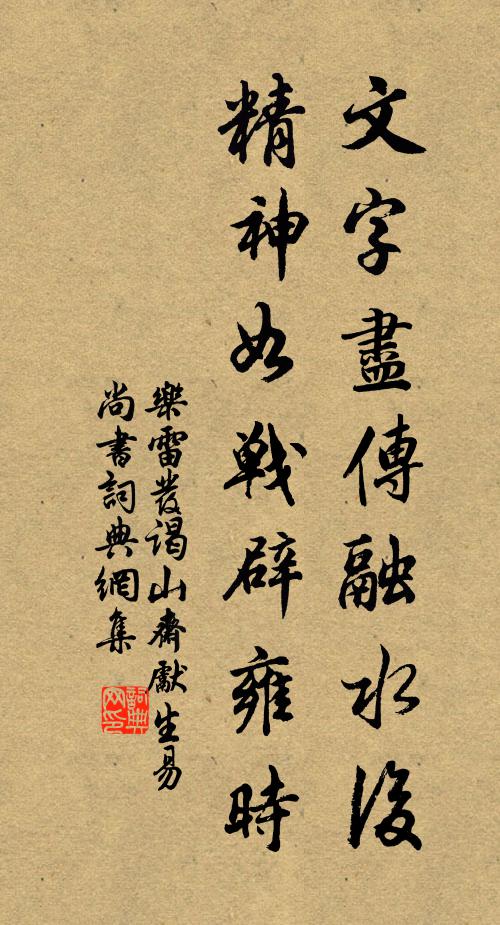 文字盡傳融水後
精神如戰辟雍時
樂雷發謁山齋獻生易
尚書詞典網集
詞典網印